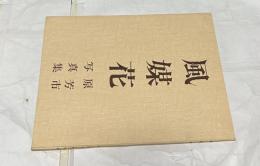 風媒花
原芳市
写真集